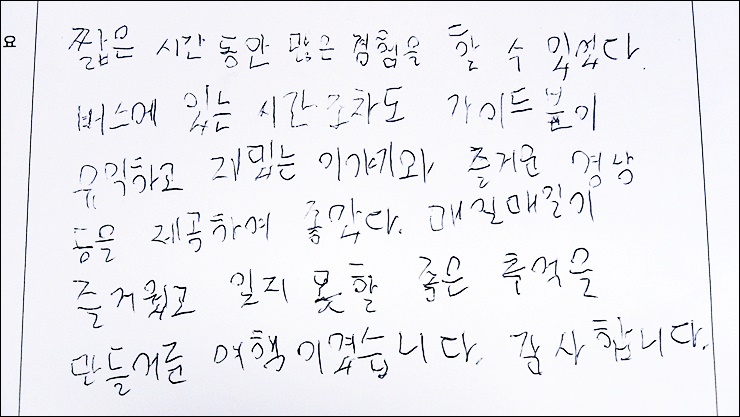 요
짧은 시간동안 많은 경험을 할 수 있었다.
버스에 있는 시간조차도 가이드분이
유익하고 재밌는 이야기와 즐거운 경상
등을 제공하여 좋았다. 매일매일이
즐거웠고 잊지 못할 좋은 추억을
만들어준 여행이겠습니다. 감사합니다.